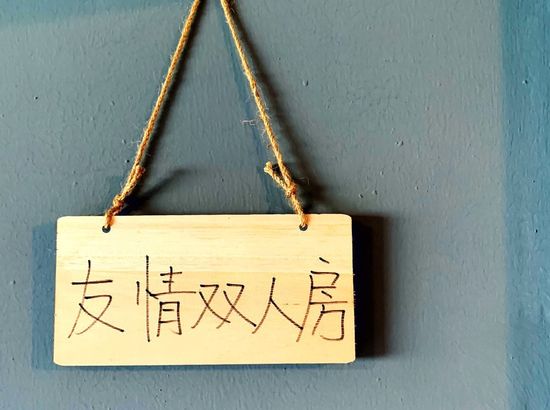 友情双人房